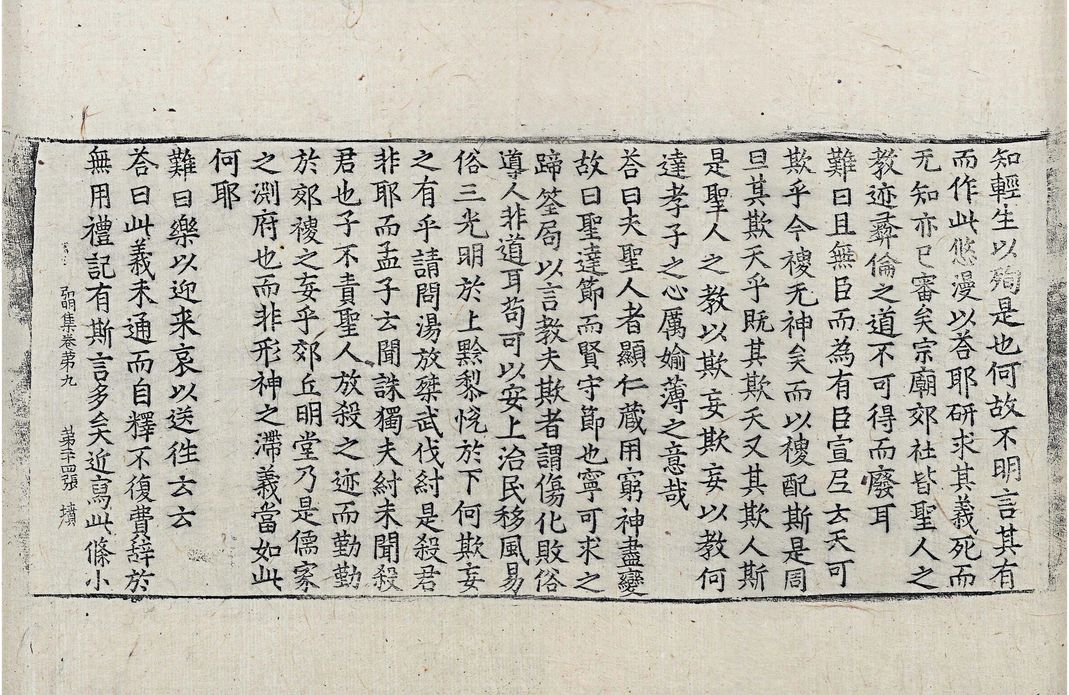 知輕生以殉是也何故不明言其有
而作此悠漫以荅耶研求其義死而
无知亦已審矣宗廟郊社皆聖人之
教迹彝倫之道不可得而廢耳
難曰且無臣而為有臣宣尼云天可
欺乎今稷无神矣而以稷配斯是周
旦其欺天乎既其欺天又其欺人斯
是聖人之教以欺妄欺妄以教何
達孝子之心厲婾薄之意哉
荅曰夫聖人者顯仁蔵用窮神盡變
故曰聖達節而賢守節也寧可求之
蹄筌局以言教夫欺者謂傷化敗俗
導人非道耳苟可以安上治民移風易
俗三光明於上黔黎恱於下何欺妄
之有乎請問湯放桀武伐紂是殺君
非耶而孟子云聞誅獨夫紂未聞殺
君也子不責聖人放殺之迹而勤勤
於郊稷之妄乎郊丘明堂乃是儒家
之渕府也而非形神之滯義當如此
何耶
難曰樂以迎来哀以送徃云云
荅曰此義未通而自釋不復費辞於
無用禮記有斯言多矣近寫此條小
弘明集卷苐九　苐二十四張　墳